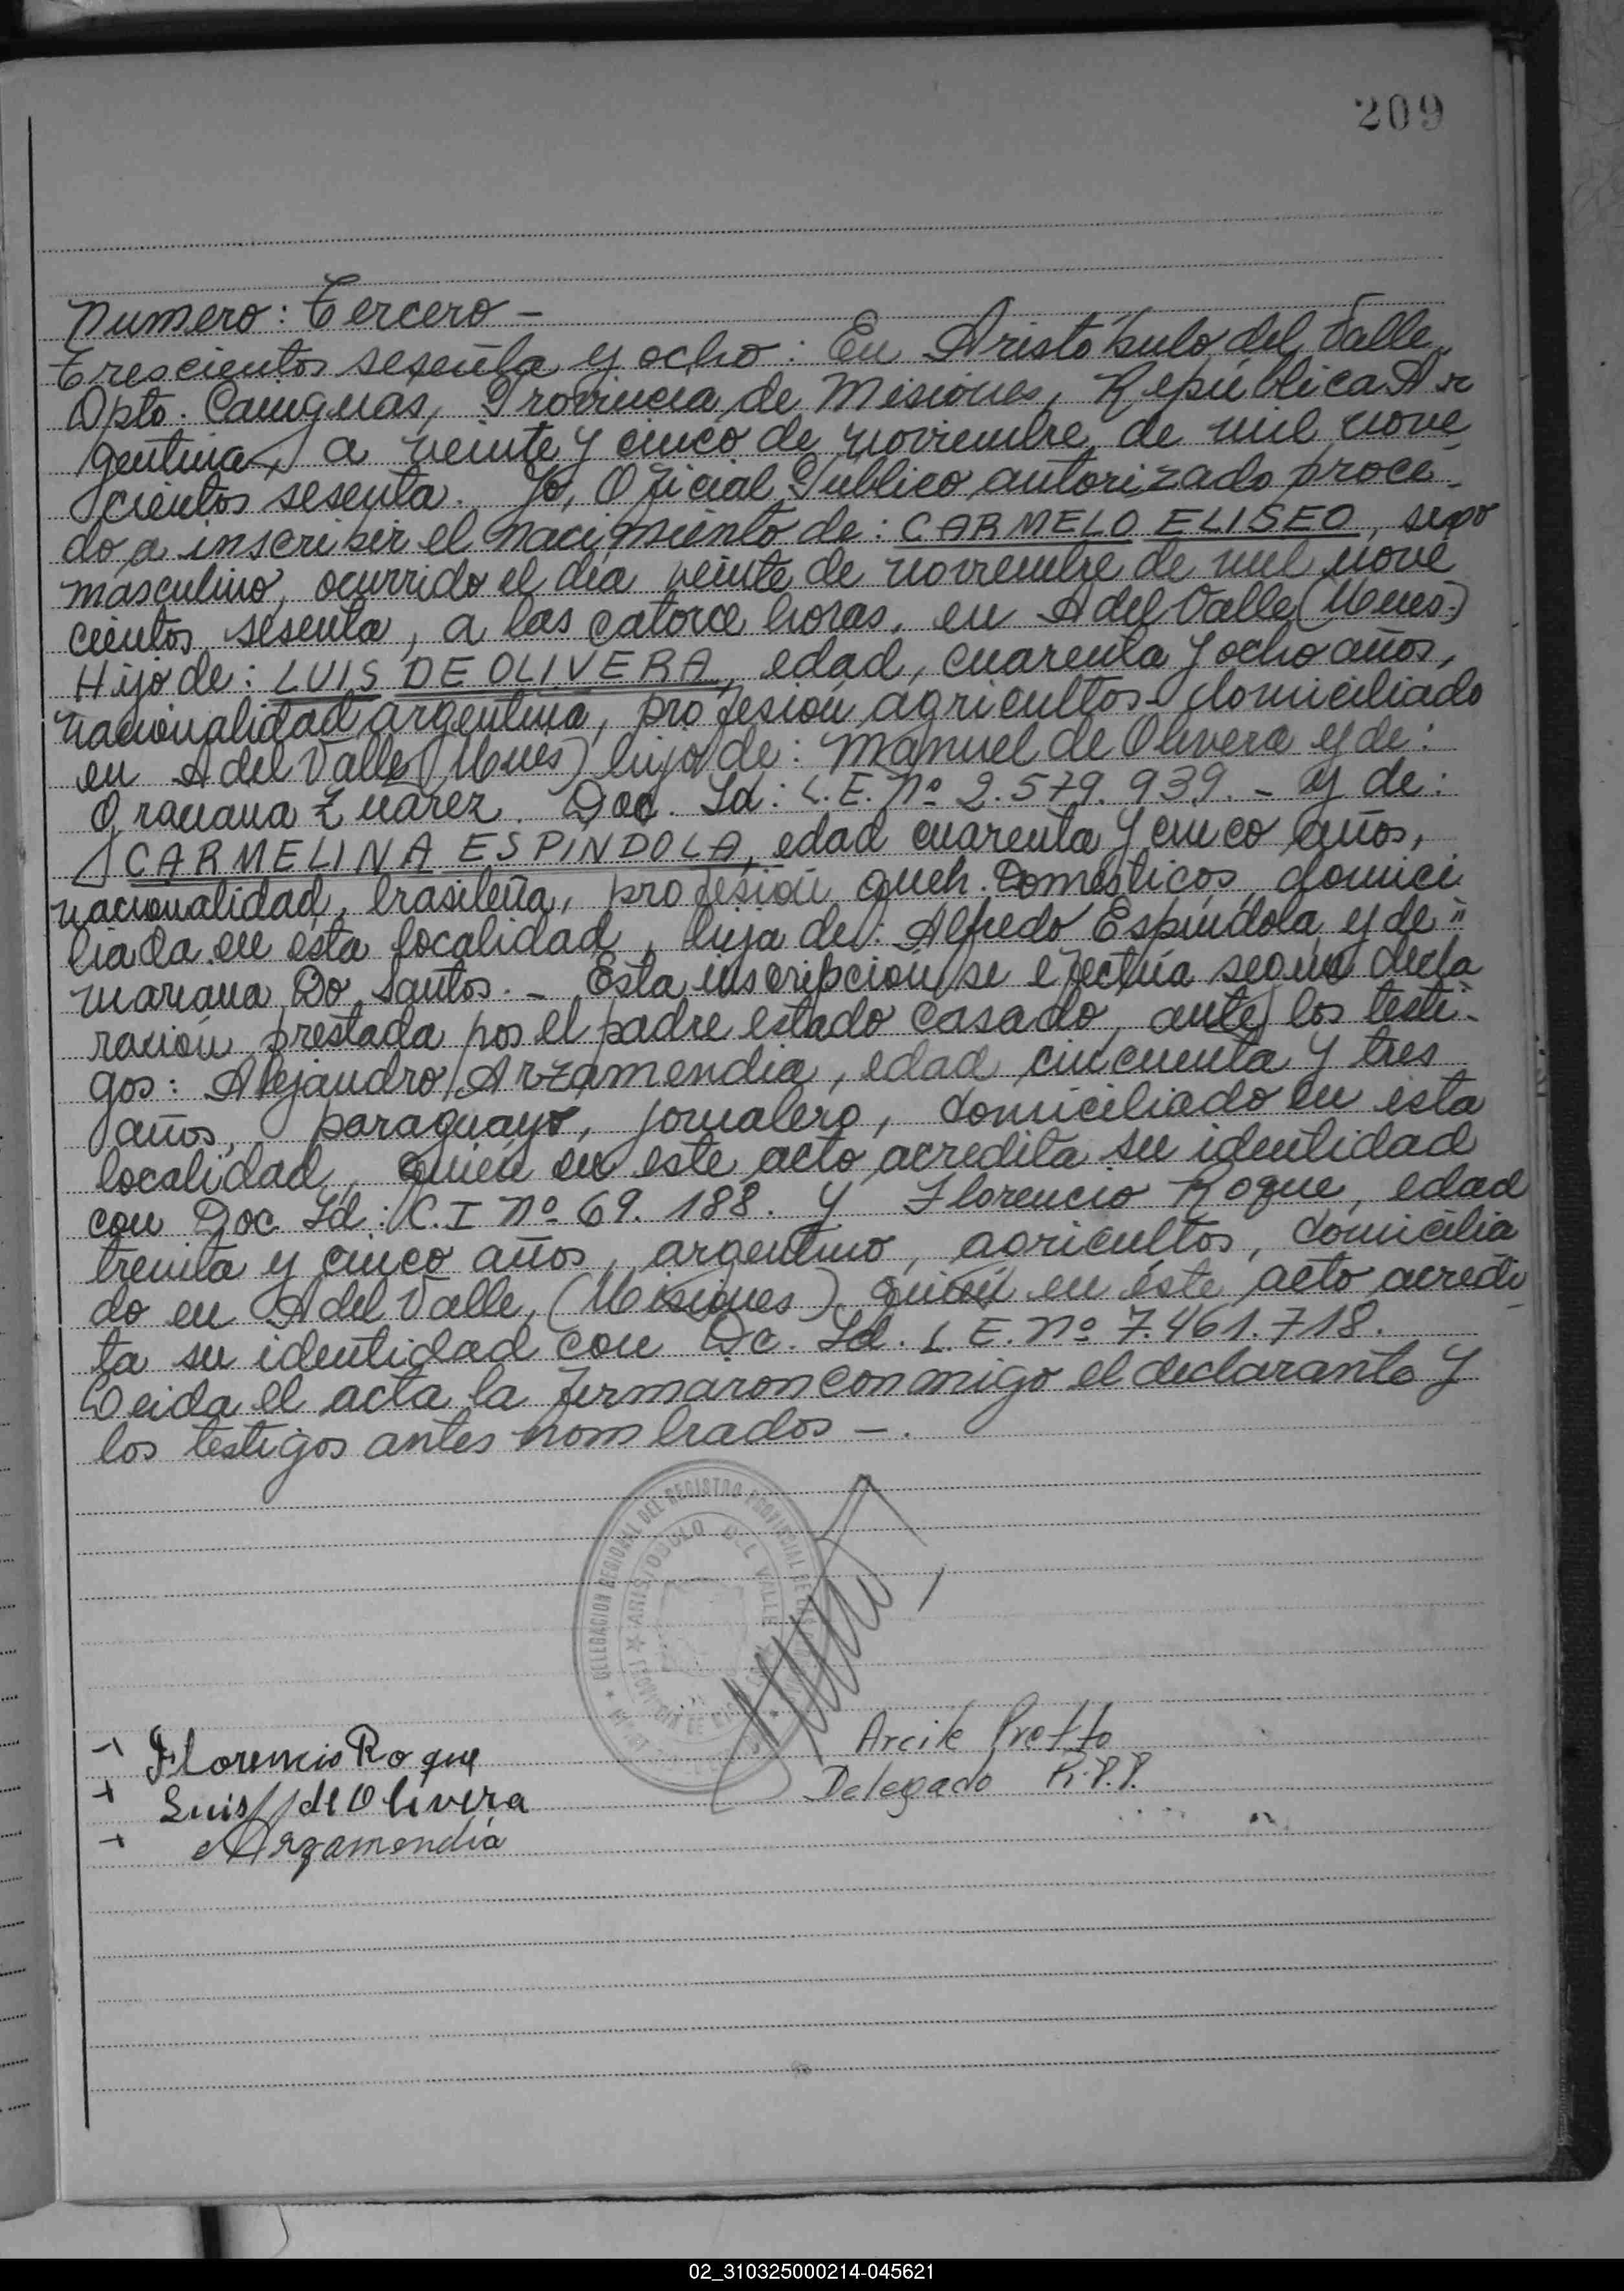 209
Numero: Tercero -
Trescientos sesenta y ocho: En Aristóbulo del Valle
Dpto. Cainguas, Provincia de Misiones, República Ar
gentina, a veinte y cinco de noviembre de mil nove
cientos sesenta. Yo, Oficial Público autorizado proce-
do a inscribir el nacimiento de: CARMELO ELISEO, sexo
masculino, ocurrido el día veinte de noviembre de mil nove
cientos sesenta, a las catorce horas, en A del Valle (Mnes.)
Hijo de: LUIS DE OLIVERA, edad, cuarenta y ocho años,
nacionalidad argentina, profesión agricultor domiciliado
en A del Valle (Mnes) hijo de: Manuel de Olivera y de:
Zuarez. Doc. Id: L.E. Nº 2.579.939. - y de:
CARMELINA ESPINDOLA, edad cuarenta y cinco años,
nacionalidad, brasileña, profesión queh. Domésticos, domici
liada en ésta localidad, hija de: Alfredo Espíndola y de:
Mariana Do Santos. - Esta inscripción se efectúa según decla
ración prestada por el padre estado casado, ante los testi-
gos: Alejandro Arzamendia, edad cincuenta y tres
años, paraguayo, jornalero, domiciliado en ésta
localidad, quién en este acto acredita su identidad
con Doc. Id: C.I Nº 69.188. y Florencio Roque, edad
treinta y cinco años, argentino, agricultor, domicilia
do en A del Valle, (Misiones) quién en éste acto acredi
ta su identidad con Dc. Id. L.E. Nº 7.461.718.
Leida el acta la firmaron conmigo el declarante y
los testigos antes nombrados -.
DELEGACION REGIONAL DEL REGISTRO PROVINCIAL DE LAS
ARISTOBULO DEL VALLE
Florencio Roque
Luis de Olivera
Arzamendia
Arcile Protto
Delegado R.P.P.
02_310325000214-045621